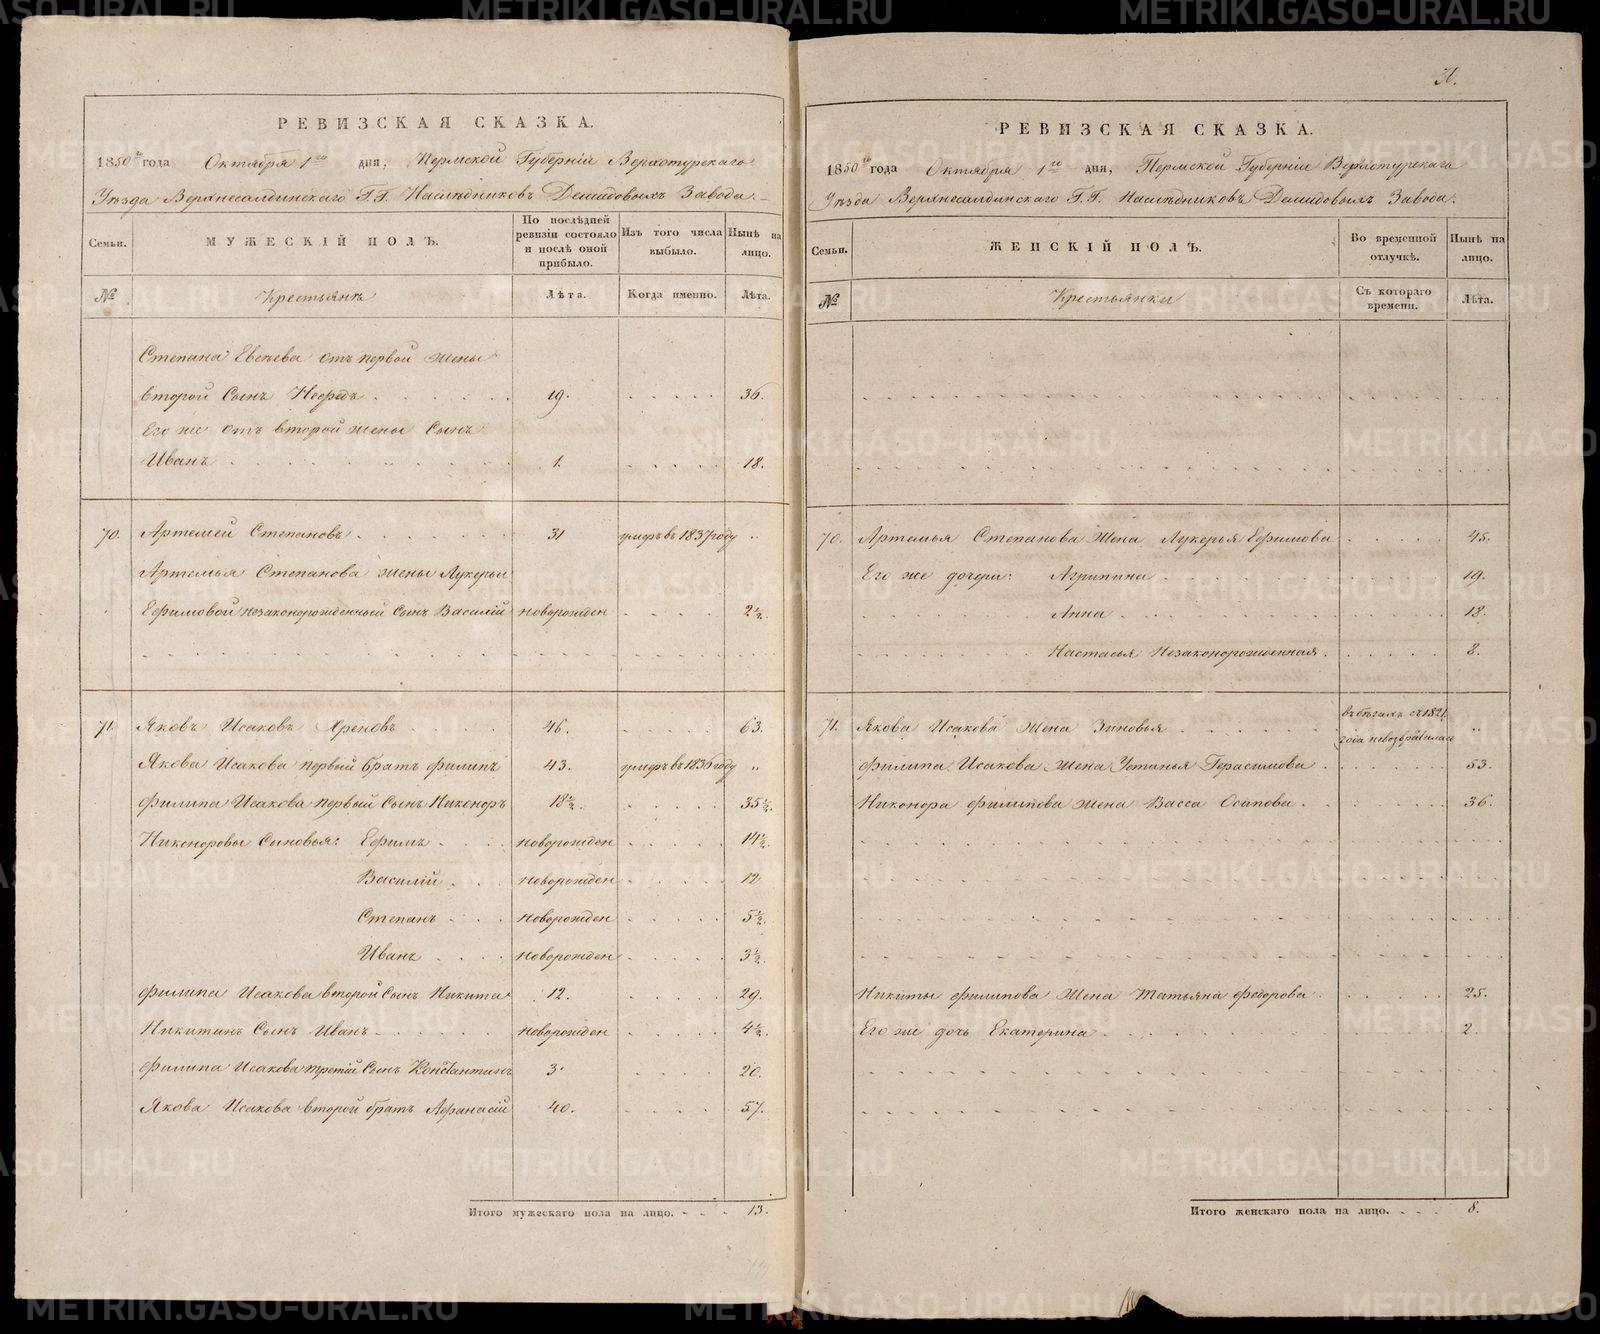 РЕВИЗСКАЯ СКАЗКА.
1850го года Октября 1го дня, Пермской Губерніи Верхотурскаго
Уѣзда Верхнесалдинскаго Г.Г. Наслѣдниковъ Демидовыхъ Завода.
Семьи. МУЖЕСКІЙ ПОЛЪ. По послѣдней ревизіи состояло и послѣ оной прибыло. Изъ того числа выбыло. Нынѣ на лицо.
№ Крестьянъ Лѣта. Когда именно. Лѣта.
Степана Евсѣева отъ первой жены
второй Сынъ 19. 36.
Его же отъ второй жены Сынъ
Иванъ 1. 18.
70. Артемей Степановъ 31 умеръ въ 1837 году „
Артемья Степанова жены Лукерьи
Ефимовой незаконорожденный Сынъ Василій новорожден 2½.
71. Яковъ Исаковъ Хреновъ 46. 63.
Якова Исакова первый братъ Филипъ 43. умеръ въ 1836 году „
Филипа Исакова первый Сынъ Никоноръ 18½. 35½.
Никоноровы Сыновья: Ефимъ новорожден 14½.
Василій новорожден 12
Степанъ новорожден 5½.
Иванъ новорожден 3½.
Филипа Исакова второй Сынъ Никита 12. 29.
Никитинъ Сынъ Иванъ новорожден 4½.
Филипа Исакова третій Сынъ Константинъ 3. 20.
Якова Исакова второй братъ Афанасій 40. 57.
Итого мужескаго пола на лицо. 13.
31.
РЕВИЗСКАЯ СКАЗКА.
1850го года Октября 1го дня, Пермской Губерніи Верхотурскаго
Уѣзда Верхнесалдинскаго Г.Г. Наслѣдниковъ Демидовыхъ Завода.
Семьи. ЖЕНСКІЙ ПОЛЪ. Во временной отлучкѣ. Нынѣ на лицо.
№ Крестьянки Съ котораго времени. Лѣта.
70. Артемья Степанова Жена Лукерья Ефимова 45.
Его же дочери: Агрипина 19.
Анна 18.
Настасья Незаконорожденная. 8.
71. Якова Исакова Жена Зиновья въ бѣгахъ съ 1821 года невозвратилась „
Филипа Исакова Жена Устинья Герасимова 53.
Никонора Филипова жена Васса Осипова. 36.
Никиты Филипова Жена Татьяна Федорова 25.
Его же дочь Екатерина 2.
Итого женскаго пола на лицо. 8.
METRIKI.GASO-URAL.RU